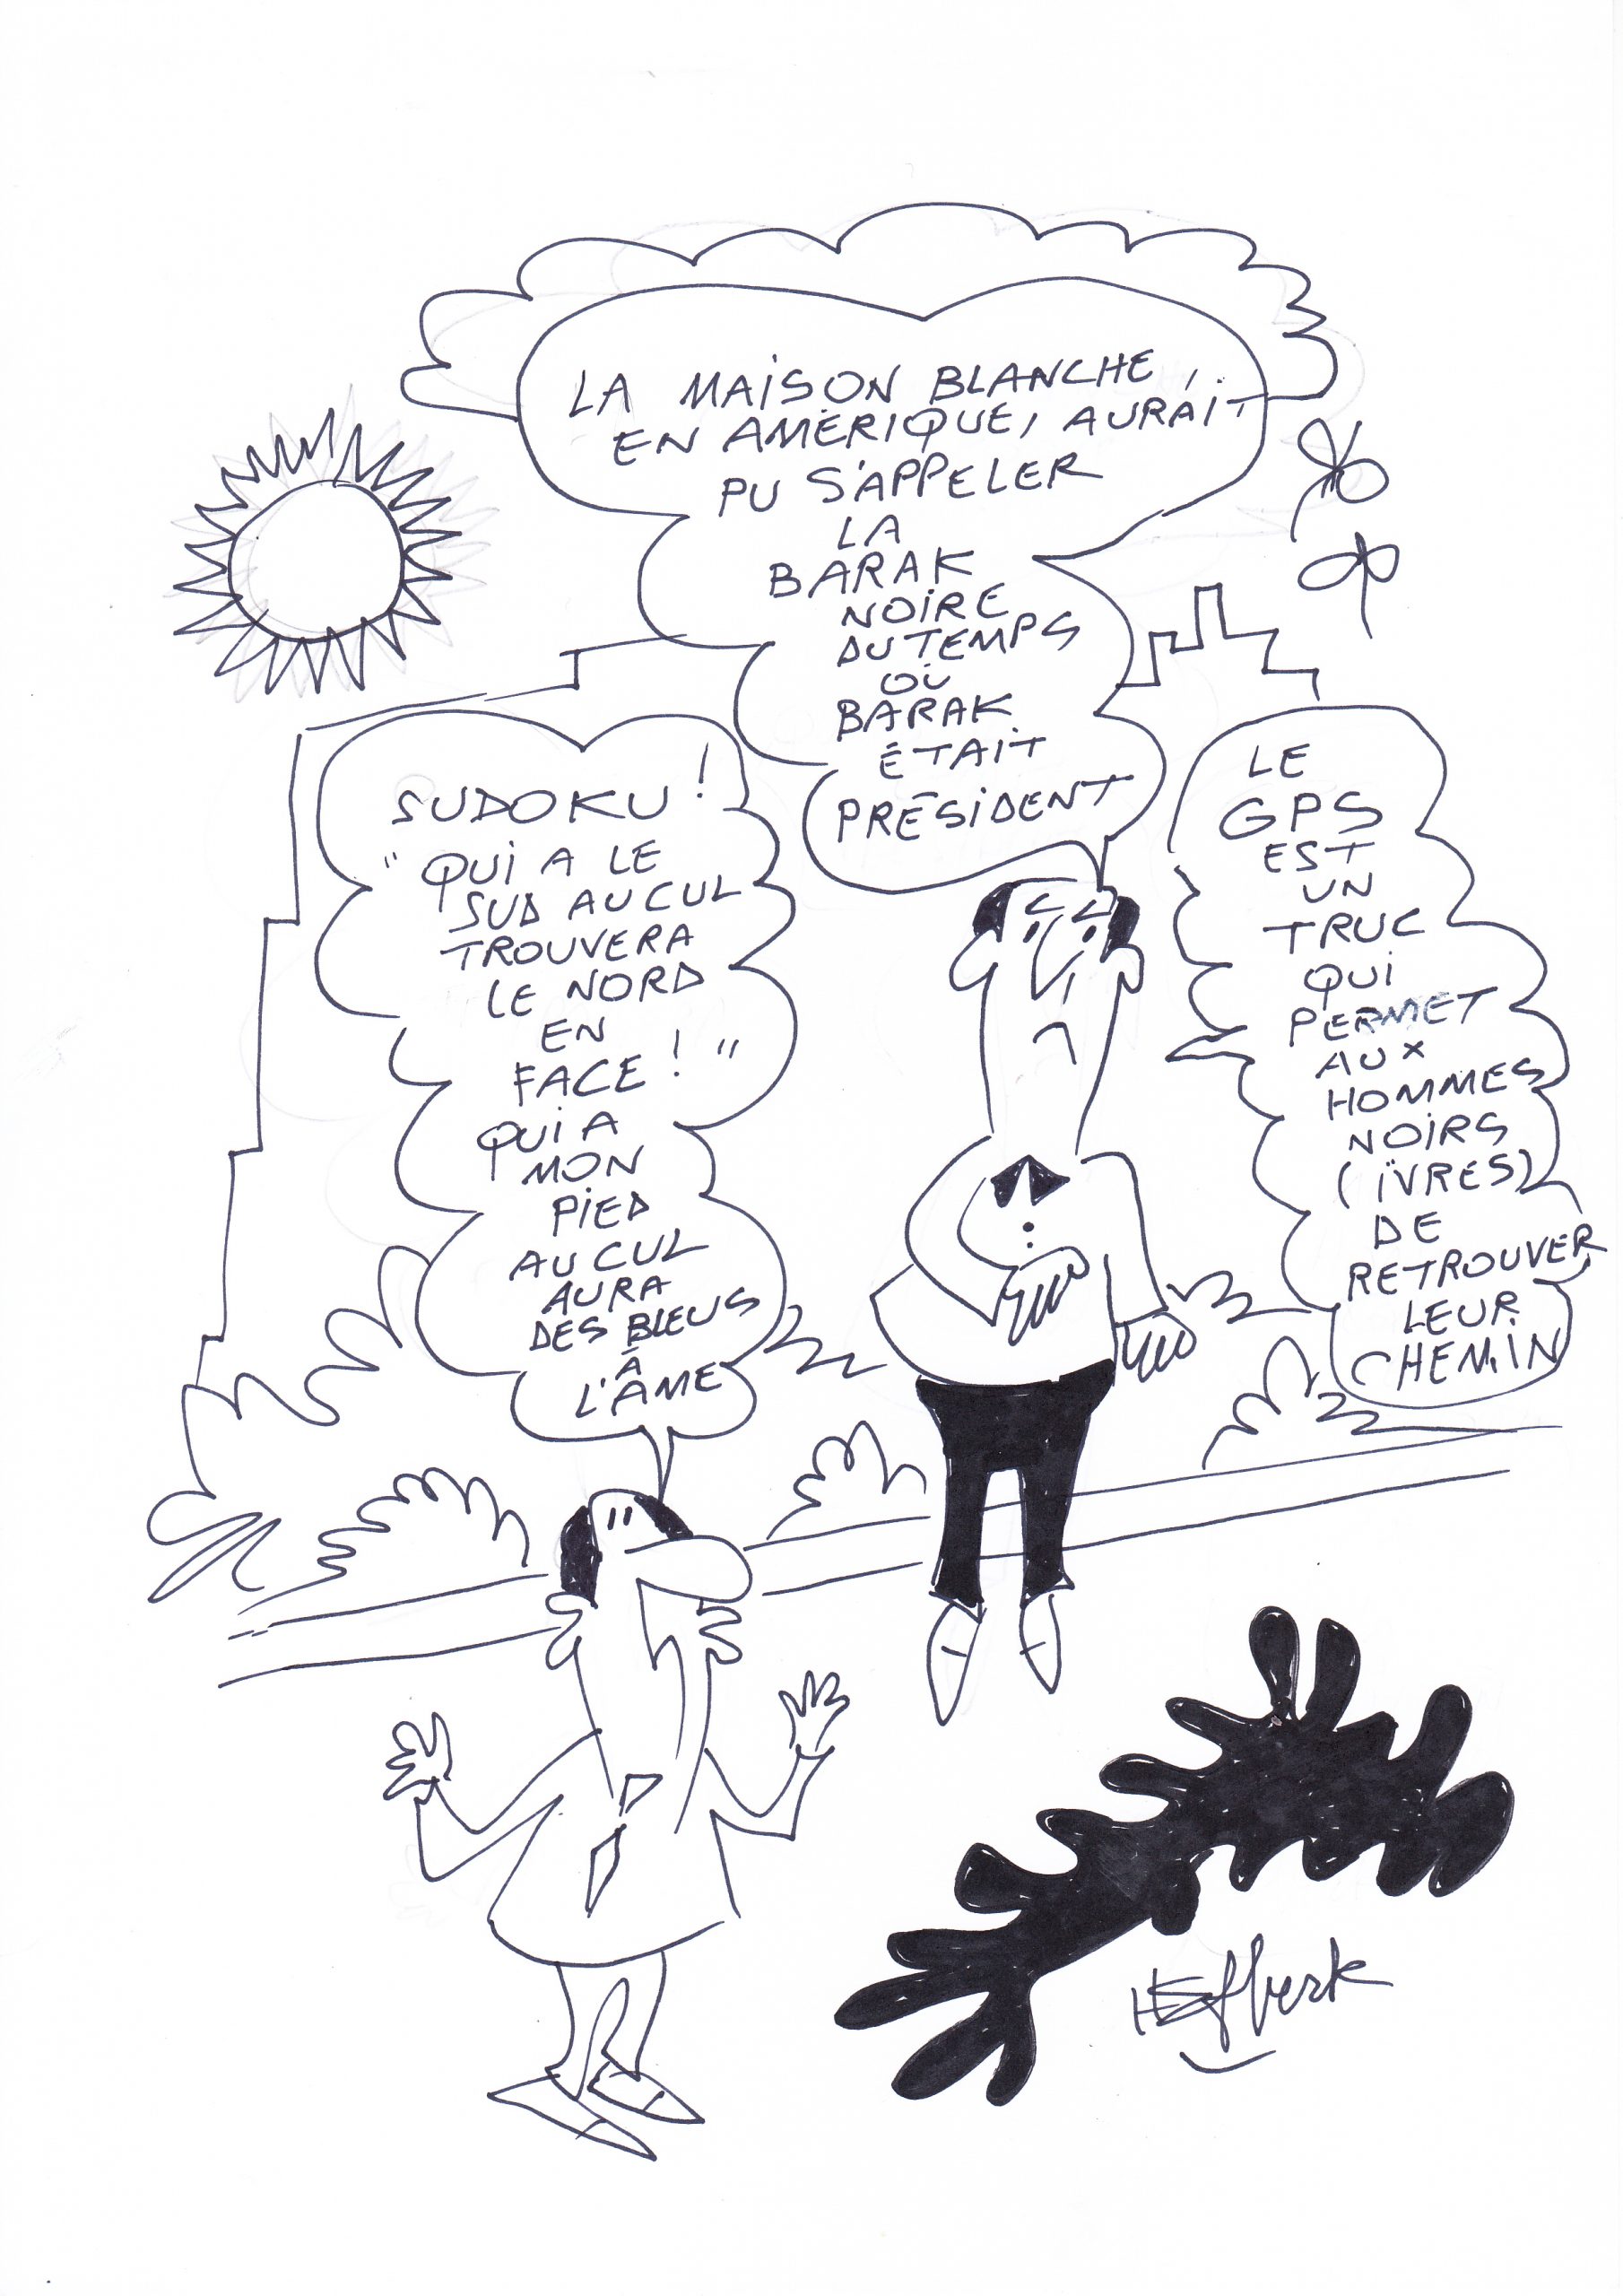 LA MAISON BLANCHE,
EN AMÉRIQUE, AURAIT
PU S'APPELER
LA
BARAK
NOIRE
DU TEMPS
OÙ
BARAK
ÉTAIT
PRÉSIDENT
SUDOKU !
"QUI A LE
SUD AU CUL
TROUVERA
LE NORD
EN
FACE ! "
QUI A
MON
PIED
AU CUL
AURA
DES BLEUS
À
L'ÂME
LE
GPS
EST
UN
TRUC
QUI
PERMET
AUX
HOMMES
NOIRS
(IVRES)
DE
RETROUVER
LEUR
CHEMIN